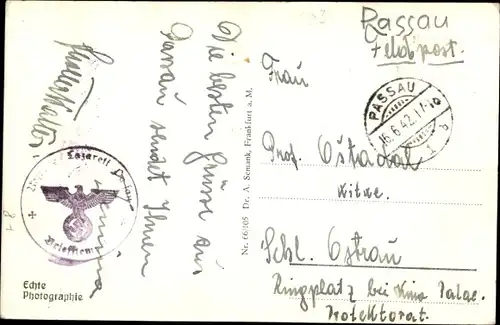 Passau
Feldpost.
Die besten Grüsse aus
Passau sendet Ihnen
PASSAU
16.6.42.17-18
b
Frau
Prof. Ostadal
Witwe.
Schl. Ostrau
Ringplatz bei Kino Palac.
Protektorat.
Nr. 66/105 Dr. A. Semank, Frankfurt a. M.
Lazarett Passau
Briefstempel
Echte
Photographie